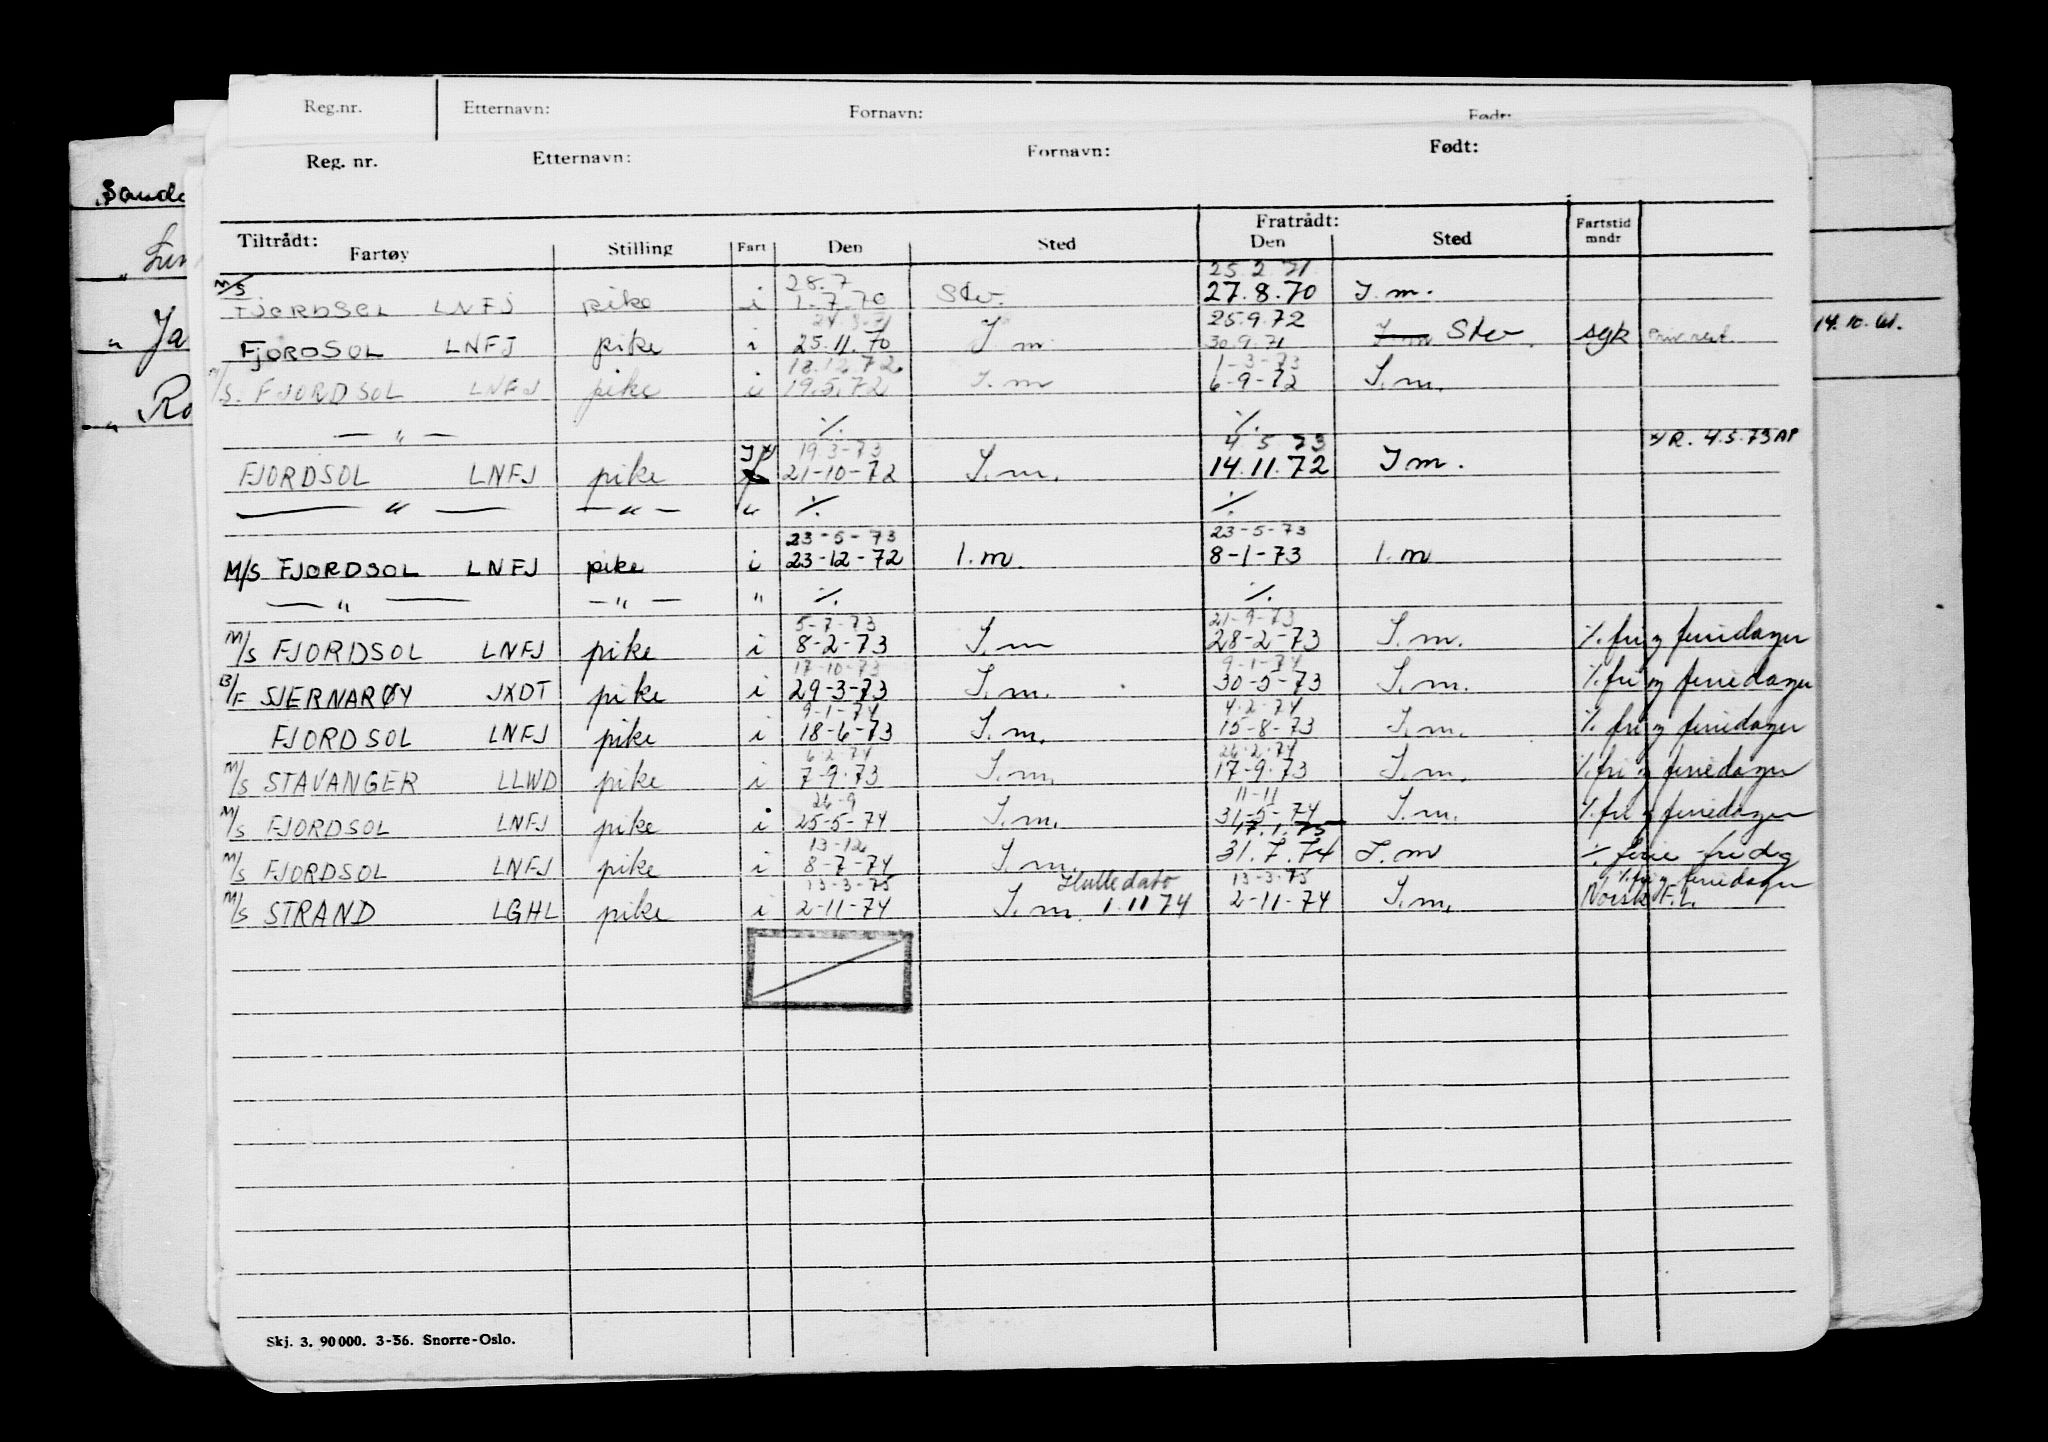 Reg.nr. Etternavn: Fornavn: Født:
Reg. nr. Etternavn: Fornavn: Født:
Tiltrådt: Fratrådt:
Fartøy Stilling Fart Den Sted Den Sted Fartstid mndr
28.7 25.2.71
M/S FJORDSOL LNFJ pike i 1-7.70 Stv. 27.8.70 I.m.
24.3-71 25.9.72
FJORDSOL LNFJ pike i 25.11.70 I m 30.9.71 I m Stv syk
18.12.72 1-3-73
M/S. FJORDSOL LNFJ pike i 19.5.72 I.m 6-9-72 I.m.
— " — ·/. ·/.
I 4 19.3-73 4 5 73 4.5.73 AP
FJORDSOL LNFJ pike 21-10-72 I.m. 14.11.72 I m.
— " — — " — " ·/. ·/.
23-5-73 23-5-73
M/S FJORDSOL LNFJ pike i 23-12-72 I.m. 8-1-73 I.m
— " — — " — " ·/. ·/.
5-7-73 21-9-73
M/S FJORDSOL LNFJ pike i 8-2-73 I.m 28-2-73 I.m. ·/. fri og feriedager
17-10-73 9-1-74
B/F SJERNARØY JXDT pike i 29-3-73 I.m. 30-5-73 I.m. ·/. fri og feriedager
9-1-74 4-2-74
FJORDSOL LNFJ pike i 18-6-73 I.m. 15-8-73 I.m. ·/. fri og feriedager
6-2-74 26-2-74
M/S STAVANGER LLWD pike i 7-9-73 I.m. 17-9-73 I.m. ·/. fri og feriedager
26-9 11-11
M/S FJORDSOL LNFJ pike i 25-5-74 I.m. 31-5-74 I.m. ·/. fri og feriedager
13-12 17.1.75
M/S FJORDSOL LNFJ pike i 8-7-74 I.m. 31.7.74 I.m ·/. ferie fridag
13-3-75 Hulledato 13-3-75 ·/. fri og feriedager
M/S STRAND LGHL pike i 2-11-74 I.m. 1.11 74 2-11-74 I.m. Norsk F.L.
Skj. 3. 90 000. 3-56. Snorre-Oslo.
Ja
14.10.61.
Ro